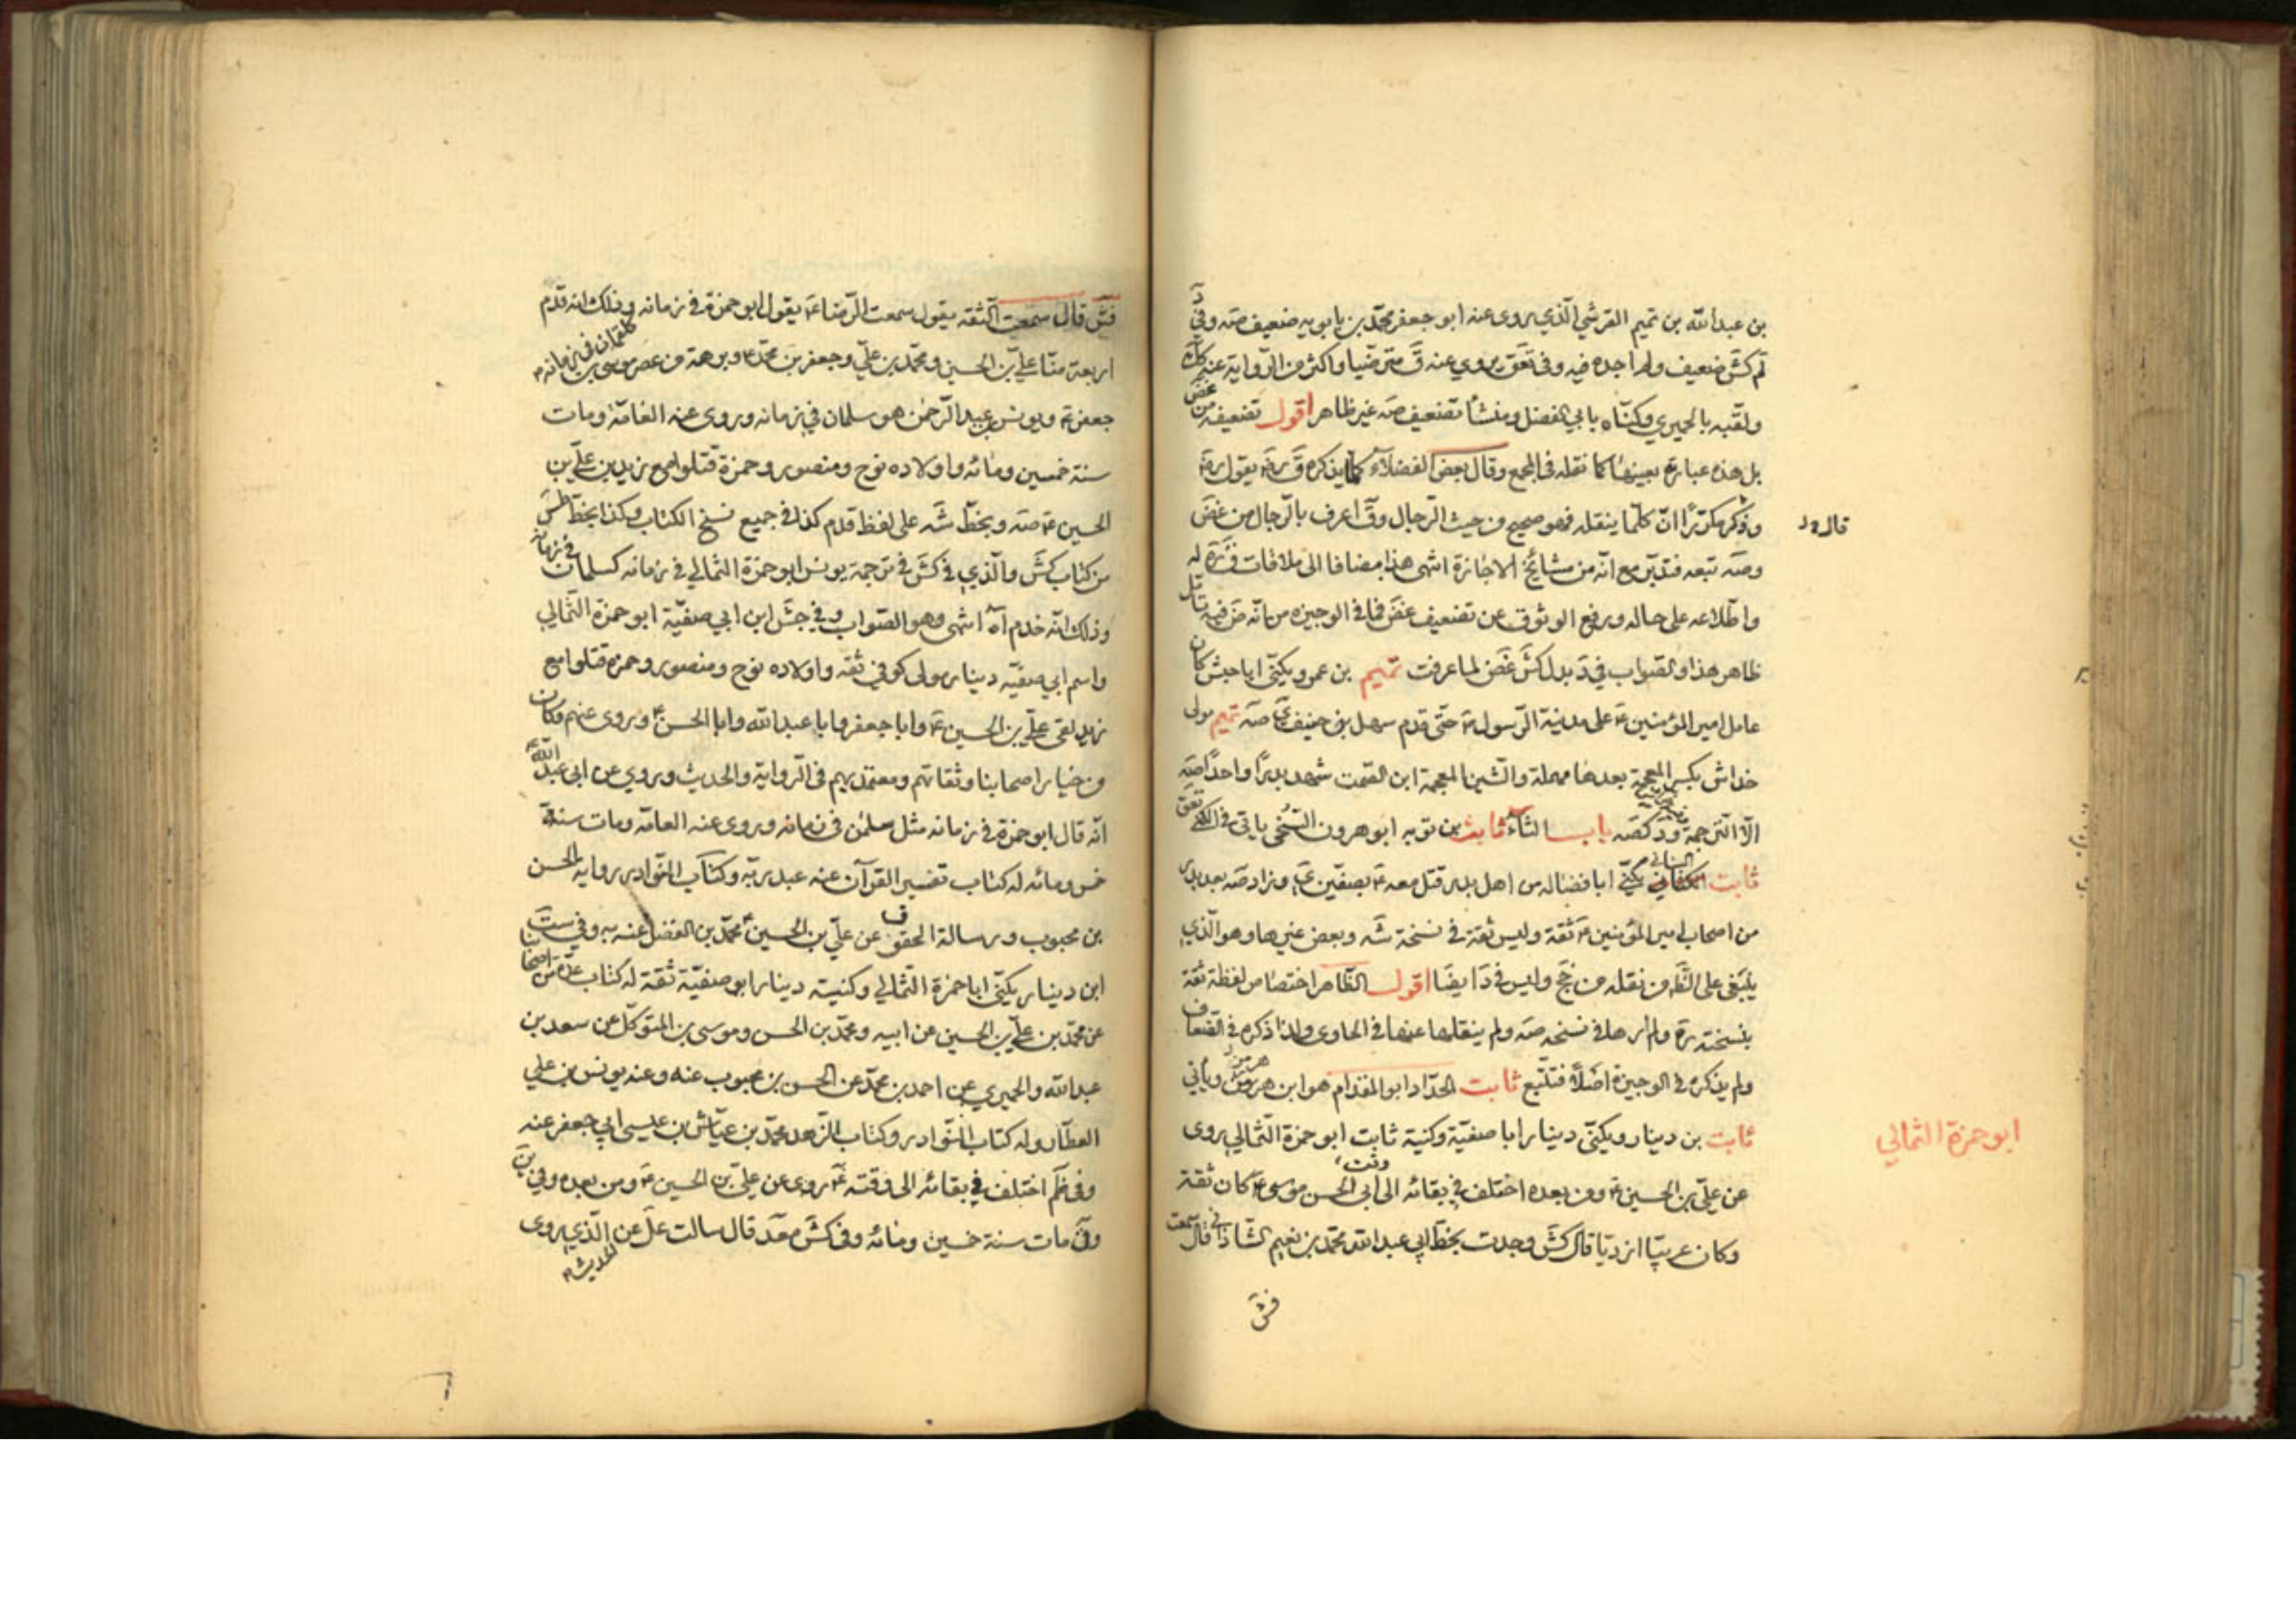 بن عبدالله بن تميم القرشي الذي يروى عنه ابو جعفر محمد بن بابويه ضعيف صه وفي د
لم كش ضعيف ولم اجده فيه وفي تعق يروي عنه ق مترضيا واكثر من الرواية عنه
ولقبه بالحميري وكناه بابي الفضل ومنشأ تضعيف صه غير ظاهر اقول تضعيفه من غض
بل هذه عبارته بعينها كما نقله في المجمع وقال بعض الفضلاء كلما يذكره ق يقول
وذكر مكررا ان كلما ينقله فهو صحيح من حيث الرجال وق اعرف بالرجال من غض
قال
وصه تبعه فتدبر مع انه من مشائخ الاجازة انتهى هذا مضافا الى ملاقات ق ره له
واطلاعه على حاله ويرفع الوثوق عن تضعيف غض فما في الوجيزه من انه ض فيه تأمل
ظاهر هذا والصواب في د بدل كش غض لما عرفت تميم بن عمرو يكنى ابا حبش كان
عامل امير المؤمنين ع على مدينة الرسول ص حتى قدم سهل بن حنيف ي صه تميم مولى
خداش بكسر المعجمة بعدها مهملة والشين المعجمة ابن الصمت شهد بدرا واحدا صه
الا الترجمة ود كصه باب الثاء ثابت بن توبه ابو هرون السنخي ياتي في الكنى تعق
ثابت البناني يكنى ابا فضاله من اهل بدر قتل معه ع بصفين ي وزاد صه بعد بدر
من اصحاب امير المؤمنين ع ثقة وليس ثقة في نسخة شه وبعض غيرها وهو الذي
ينبغي على النظر من نقله من جخ وليس في د ايضا اقول الظاهر اختصاص لفظة ثقة
بنسخته ره ولم ارها في نسخه صه ولم ينقلها عنها في الحاوى ولذا ذكره في الضعاف
ولم يذكره في الوجيزة اصلا فتتبع ثابت الحداد ابو المقدام هو ابن هرمز وياتي
ثابت بن دينار ويكنى دينار ابا صفية وكنية ثابت ابو حمزة الثمالي يروى
ابو حمزة الثمالي
عن علي بن الحسين ع ومن بعده اختلف في بقائه الى وقت ابي الحسن موسى ع كان ثقة
وكان عربيا ازديا قال كش وجدت بخط ابي عبدالله محمد بن نعيم الشاذاني قال سمعت
فش
فش قال سمعت الثقه يقول سمعت الرضا ع يقول ابو حمزة في زمانه وذلك انه قدم
كلقمان في زمانه
اربعة منا علي بن الحسين ومحمد بن علي وجعفر بن محمد ع وبرهة من عصر موسى بن
جعفر ع ويونس بن عبد الرحمن هو سلمان في زمانه وروى عنه العامة ومات
سنة خمسين ومائه واولاده نوح ومنصور وحمزة قتلوا مع زيد بن علي بن
الحسين ع صه وبخط شه على لفظ قدم كذا في جميع نسخ الكتاب وكذا بخط طس
من كتاب كش والذي في كش في ترجمة يونس ابو حمزة الثمالي في زمانه كسلمان في زمانه
وذلك انه خدم اه انتهى وهو الصواب وفي جش ابن ابي صفية ابو حمزة الثمالي
واسم ابي صفيه دينار مولى كوفي ثقه واولاده نوح ومنصور وحمزه قتلوا مع
زيد لقى علي بن الحسين ع وابا جعفر وابا عبدالله وابا الحسن ع وروى عنهم وكان
من خيار اصحابنا وثقاتهم ومعتمديهم في الرواية والحديث وروي عن ابي عبدالله ع
انه قال ابو حمزة في زمانه مثل سلمن في زمانه وروى عنه العامه ومات سنة
خمس ومائه له كتاب تفسير القرآن عنه عبد ربه وكتاب النوادر روايه الحسن
بن محبوب ورسالة الحقوق عن علي بن الحسين ع محمد بن الفضيل عنه به وفي ست
ابن دينار يكنى ابا حمزة الثمالي وكنيته دينار ابو صفية ثقة له كتاب عدة من اصحابنا
عن محمد بن علي بن الحسين عن ابيه ومحمد بن الحسن وموسى بن المتوكل عن سعد بن
عبدالله والحميري عن احمد بن محمد عن الحسن بن محبوب عنه وعنه يونس بن علي
العطار وله كتاب النوادر وكتاب الزهد محمد بن عياش بن عيسى ابي جعفر عنه
وفي ظم اختلف في بقائه الى وقته ع روى عن علي بن الحسين ع ومن بعده وفي ين
وق مات سنة خمسين ومائه وفي كش محمد قال سالت عن الذي يروى
الحديث